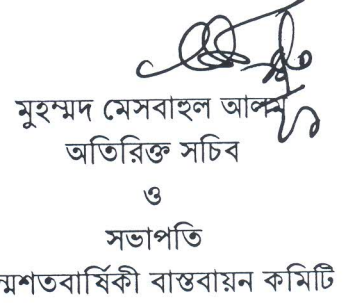 মুহম্মদ মেসবাহুল আলম
অতিরিক্ত সচিব
ও
সভাপতি
ন্মশতবার্ষিকী বাস্তবায়ন কমিটি